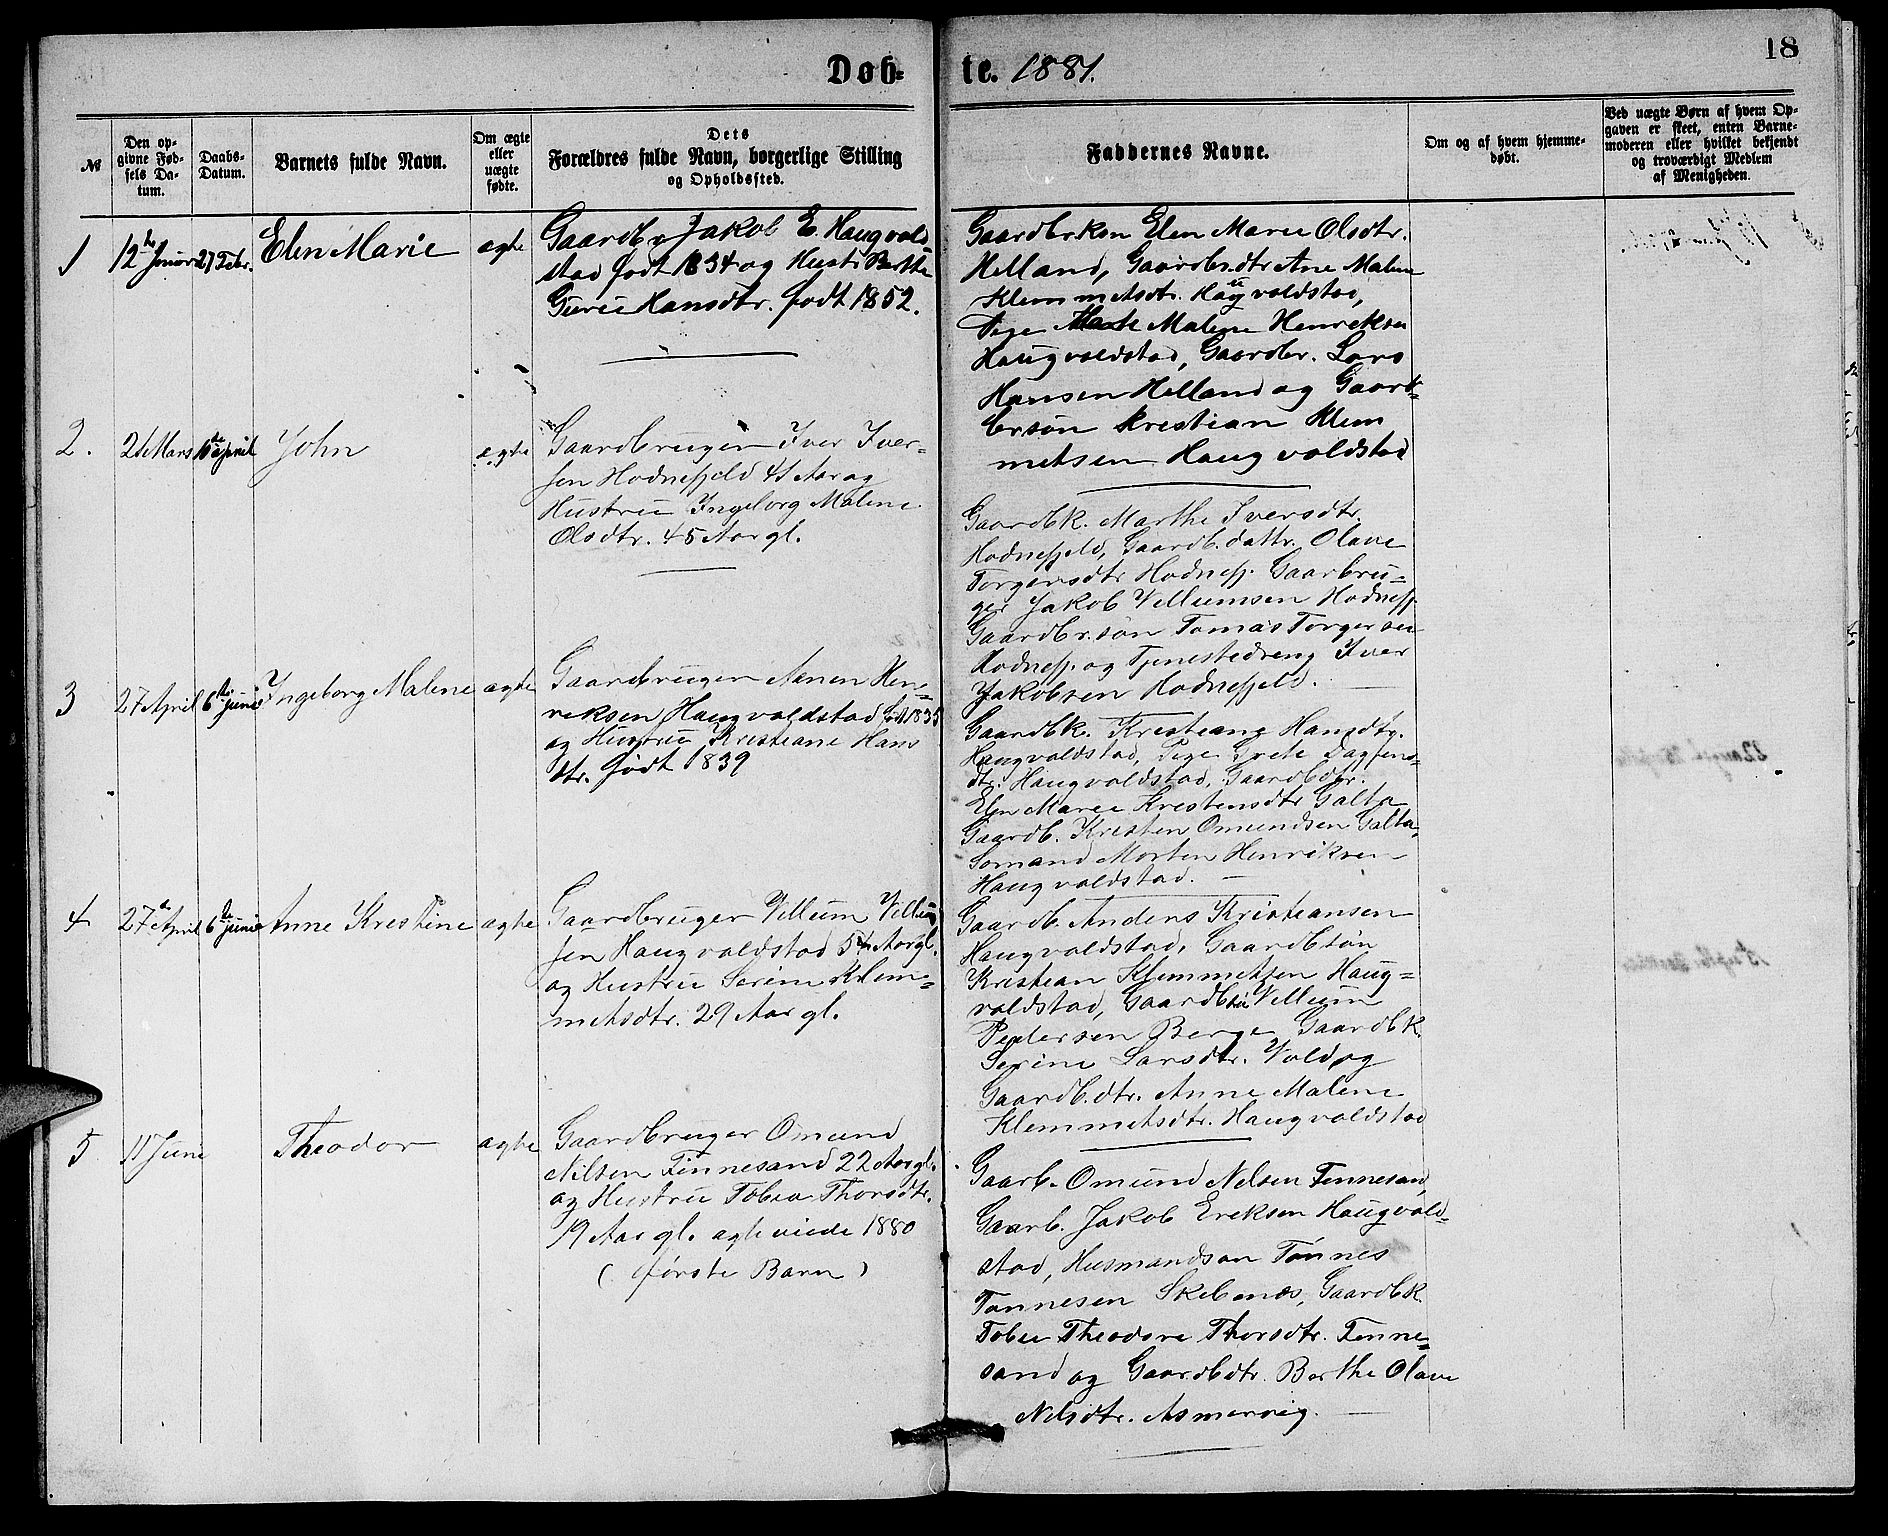 Døb-
te. 1881.
18
№
Den op-
givne Fød-
sels Da-
tum.
Daabs-
Datum.
Barnets fulde Navn.
Om ægte
eller
uægte
fødte.
Dets
Forældres fulde Navn, borgerlige Stilling
og Opholdssted.
Faddernes Navne.
Om og af hvem hjemme-
døbt.
Ved uægte Børn af hvem Op-
gaven er skeet, enten Barne-
moderen eller hvilket bekjendt
og troværdigt Medlem
af Menigheden.
1
12te Januar
27 Febr.
Elen Marie
ægte
Gaardbr Jakob E. Haugvald-
stad født 1834 og Hustr Berthe
Gurie Hansdtr. født 1852.
Gaardbrkon Elen Marie Olsdtr.
Helland, Gaardbr.dtr Ane Malene
Klemmetsdtr. Haugvaldstad,
Pige Malene Henriksen
Haugvaldstad, Gaardbr. Lars
Hansen Helland og Gaard-
brsøn Kristian Klem
metsen Haugvaldstad
2.
21 Mars
18de April
John
ægte
Gaardbruger Iver Iver-
sen Hodnefjeld 41 Aar og
Hustru Ingeborg Malene
Olsdtr. 45 Aar gl.
Gaardbk. Marthe Iversdtr.
Hodnefjeld, Gaardb.dattr. Olave
Torgersdtr Hodnefj. Gaarbru-
ger Jakob Villumsen Hodnefj.
Gaardbr.søn Tomas Torgersen
Hodnefj. og Tjenestedreng Iver
Jakobsen Hodnefjeld.
3
27 April
6te Juni
Ingeborg Malene
ægte
Gaardbruger Aanen Hen-
reksen Haugvaldstad født 1835
og Hustru Kristiane Hans
dtr. født 1839
Gaardbk. Kristiane Hansdtr.
Haugvaldstad, Pige Grete Dagfins-
dtr. Haugvaldstad, Gaardbdtr.
Elen Marie Kristensdtr Galta
Gaardb. Kristen Omundsen Galta,
Sømand Morten Henriksen
Haugvaldstad.
4
27de April
6te Juni
Anne Kristine
ægte
Gaardbruger Villum Villum
sen Haugvaldstad 54 Aar gl.
og Hustru Serine Klem-
metsdtr. 29 Aar gl.
Gaardb. Anders Kristiansen
Haugvaldstad, Gaardbsøn
Kristian Klemmetsen Haug-
valdstad, Gaardbr Villum
Pedersen Berge, Gaardbk.
Serine Larsdtr. Vold og
Gaardb.dtr. Anne Malene
Klemmetsdtr. Haugvaldstad
5
11 Juni
Theodor
ægte
Gaardbruger Omund
Nilsen Finnesand 22 Aar gl.
og Hustru Tobia Thorsdtr.
19 Aar gl. ægteviede 1880
(første Barn)
Gaarb. Omund Nelsen Finnesand,
Gaarb. Jakob Ereksen Haugvald-
stad, Husmandsøn Tønnes
Tønnesen Skebenes, Gaardbk.
Tobia Theodora Thorsdtr. Finne-
sand og Gaardbdtr. Berthe Olave
Nelsdtr. Asmarvig.